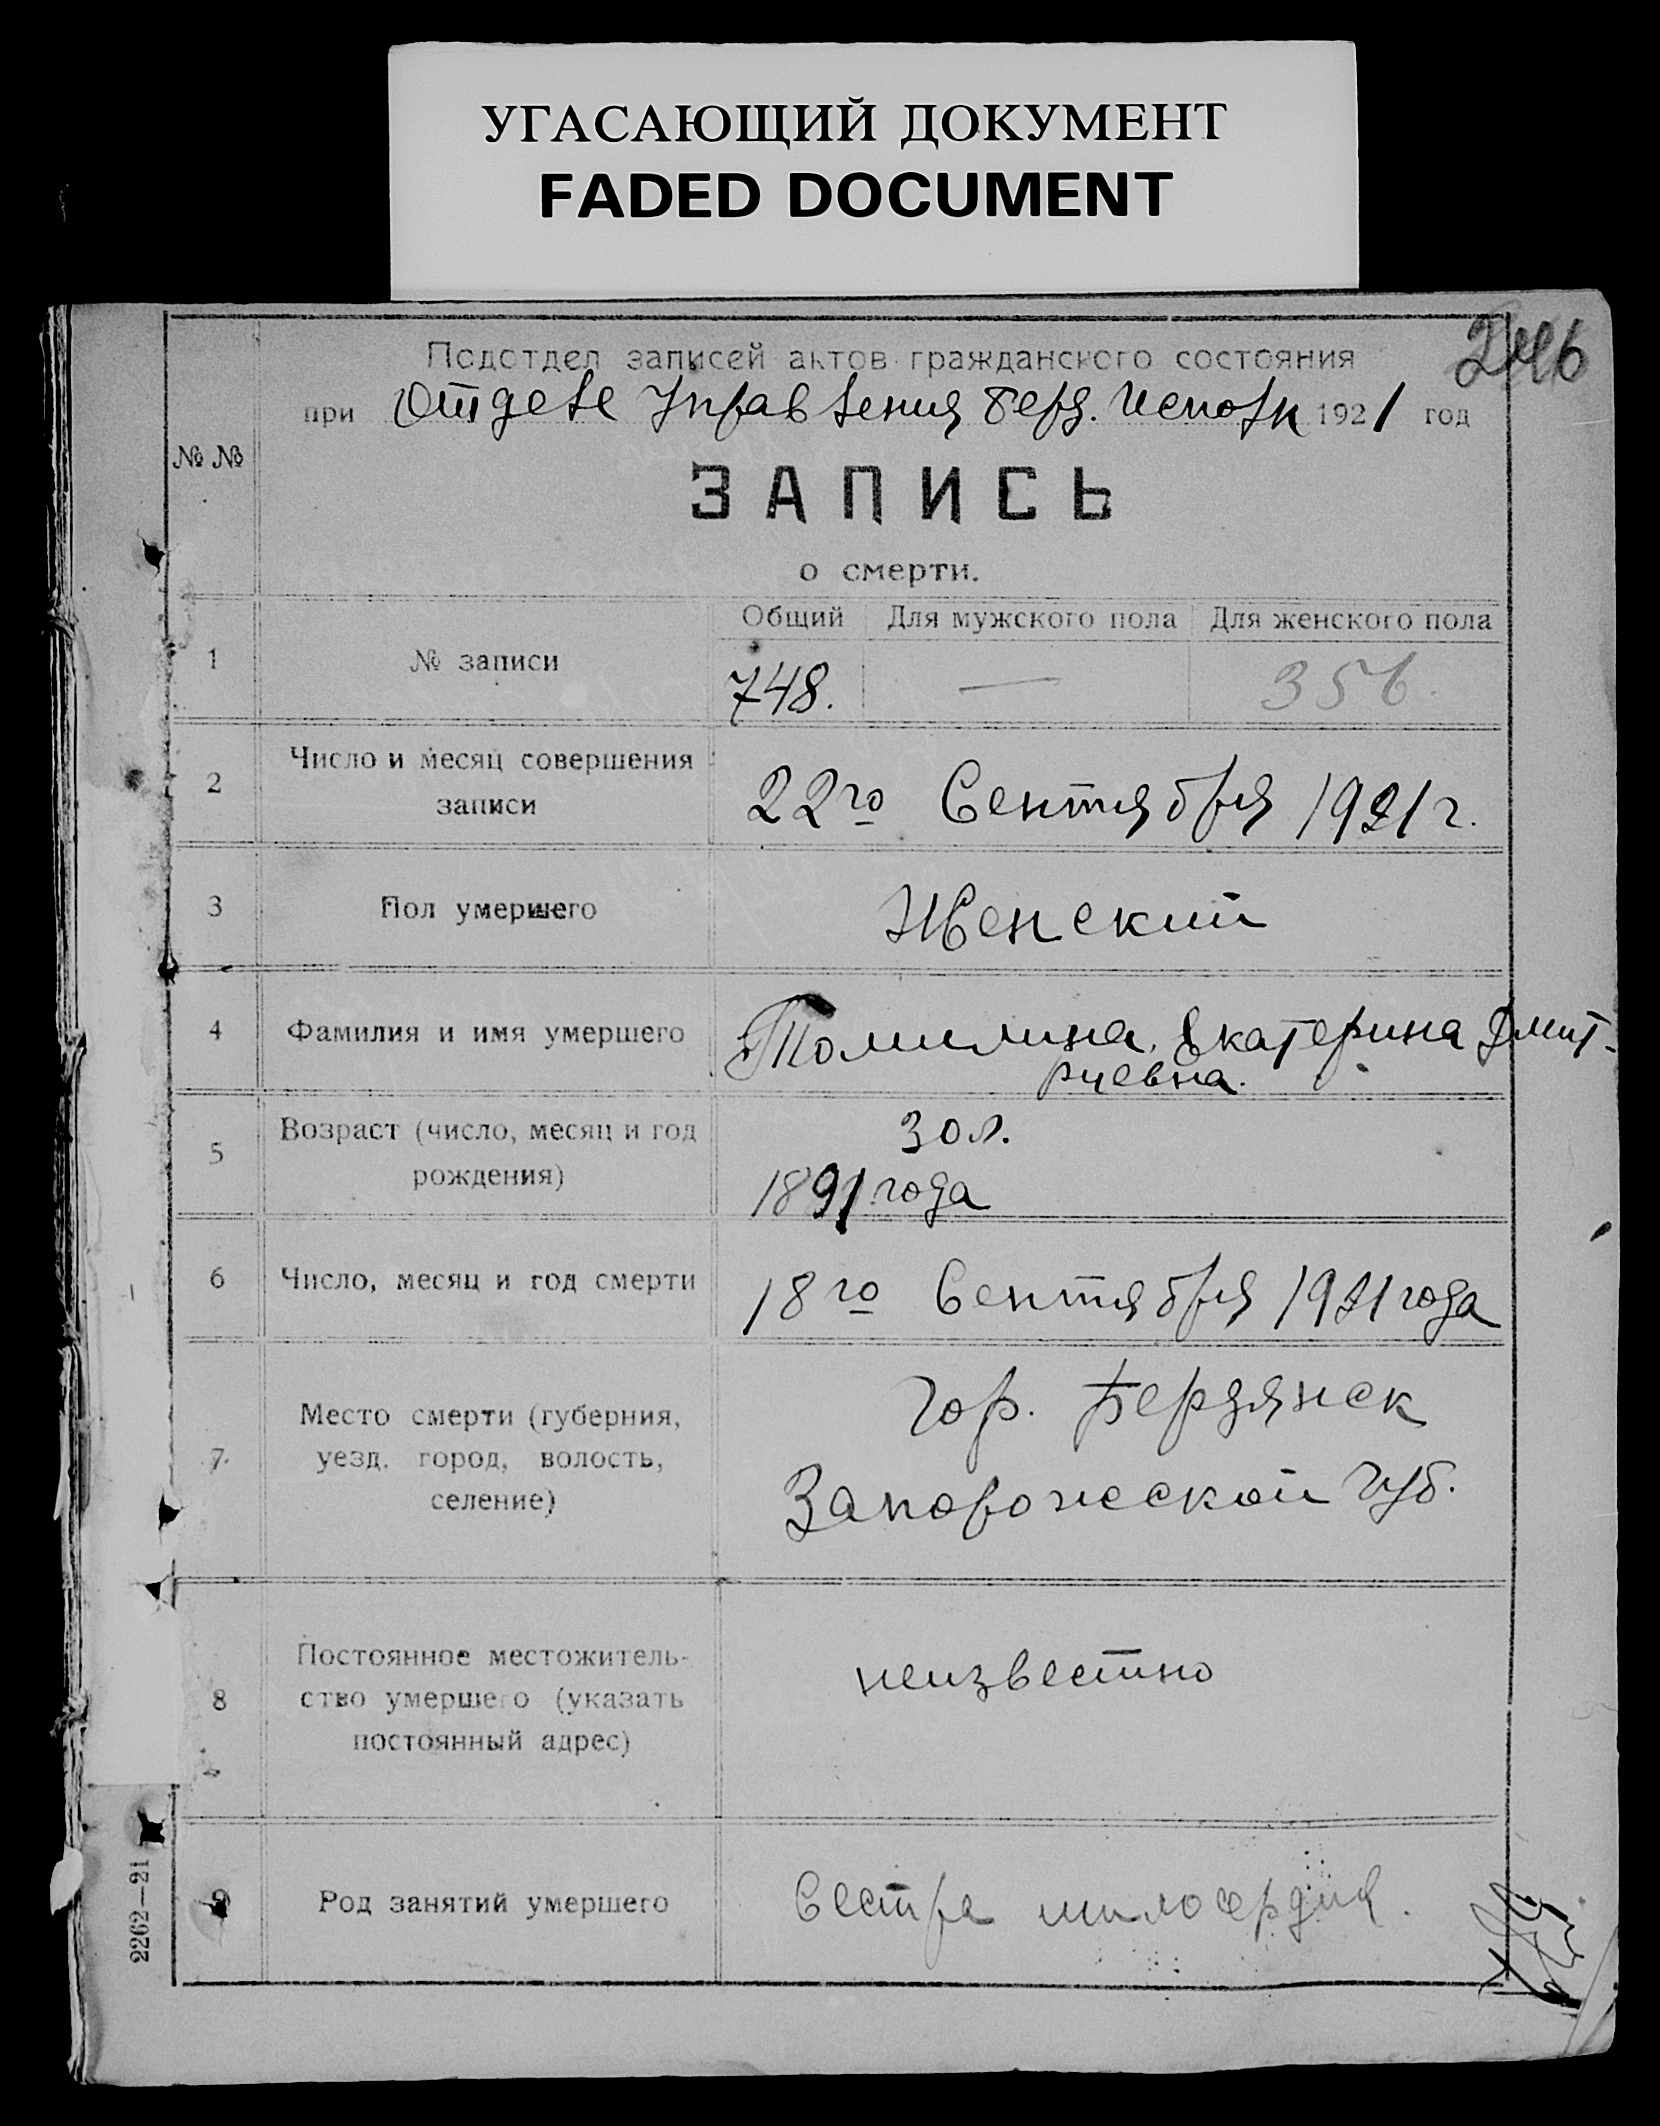 УГАСАЮЩИЙ ДОКУМЕНТ
FADED DOCUMENT
246
Подотдел записей актов гражданского состояния
при Отделе Управления Берд. Исполк 1921 год
№ №
ЗАПИСЬ
о смерти.
Общий Для мужского пола Для женского пола
1 № записи 748. — 356.
2 Число и месяц совершения
записи
22го Сентября 1921 г.
3 Пол умершего Женский
4 Фамилия и имя умершего Томилина Екатерина Дмит-
риевна.
5 Возраст (число, месяц и год
рождения)
30 л.
1891 года
6 Число, месяц и год смерти 18го Сентября 1921 года
7 Место смерти (губерния,
уезд, город, волость,
селение)
Гор. Бердянск
Запорожской Губ.
8 Постоянное местожитель-
ство умершего (указать
постоянный адрес)
неизвестно
9 Род занятий умершего Сестра милосердия.
2262—21